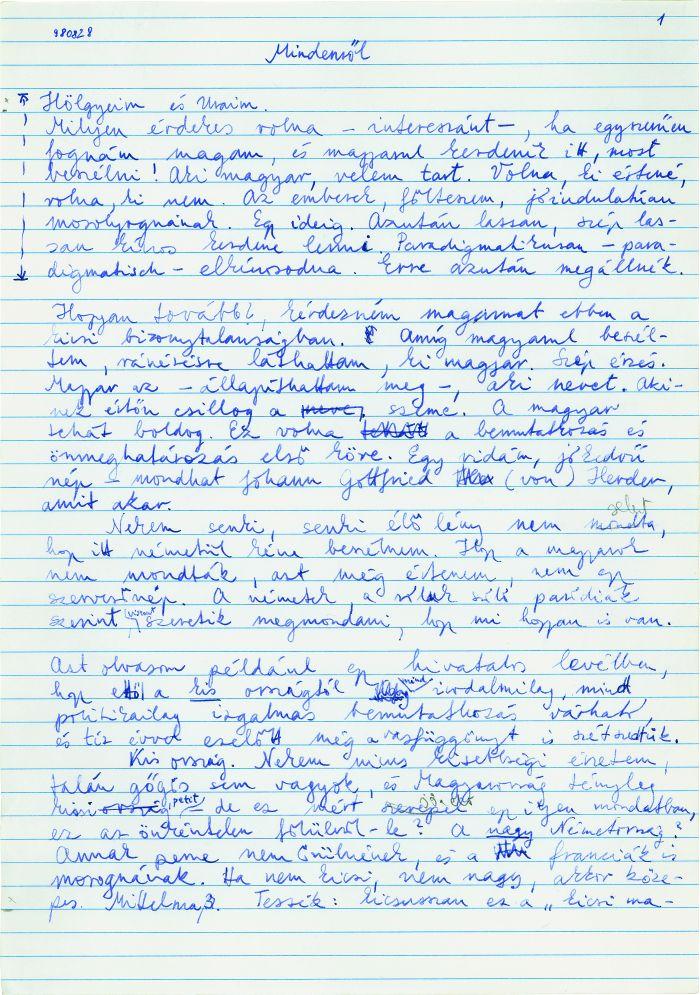 980828
1
Mindenről
Hölgyeim és Uraim.
Milyen érdekes volna – interessant –, ha egyszerűen
fognám magam, és magyarul kezdenék itt, most
beszélni! Aki magyar, velem tart. Volna, ki értené,
volna, ki nem. Az emberek, fölteszem, jóindulatúan
mosolyognának. Egy ideig. Azután lassan, szép las-
san kínos kezdene lenni. Paradigmatikusan – para-
digmatisch – elkínosodna. Erre azután megállnék.
Hogyan tovább?, kérdezném magamat ebben a
kicsi bizonytalanságban. Amíg magyarul beszél-
tem, ránézésre láthattam, ki magyar. Szép érzés.
Magyar az – állapíthattam meg –, aki nevet. Aki-
nek értőn csillog a szeme. A magyar
tehát boldog. Ez volna a bemutatkozás és
önmeghatározás első köre. Egy vidám, jókedvű
nép – mondhat Johann Gottfried (von) Herder,
amit akar.
Nekem senki, senki élő lény nem mondta,
hogy itt németül kéne beszélnem. Hogy a magyarok
nem mondták, azt még értenem, nem egy
szervezőnép. A németek a róluk szóló paródiák
szerint viszont szeretik megmondani, hogy mi hogyan is van.
Azt olvasom például egy hivatalos levélben,
hogy ettől a kis országtól mind irodalmilag, mind
politikailag izgalmas bemutatkozás várható,
és tíz évvel ezelőtt még a vasfüggönyt is szétszedtük.
Kis ország. Nekem nincs kisebbségi érzetem,
talán gőgös sem vagyok, és Magyarország tényleg
kicsi ország, petit – de ez miért szerepel egy ilyen mondatban,
ez az önkéntelen fölülről-le? A nagy Németország?
Annak persze nem örülnének, és a franciák is
morognának. Ha nem kicsi, nem nagy, akkor köze-
pes. Mittelmaß. Tessék: kicsusszan ez a „kicsi ma-